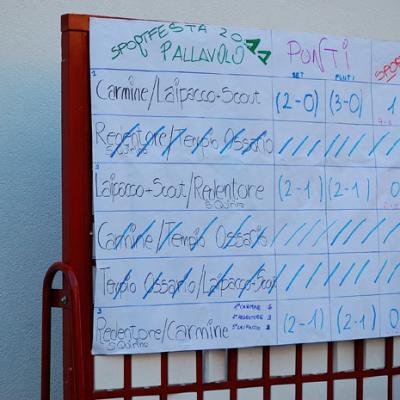 SPORTFESTA 2011
PALLAVOLO PUNTI
SET PUNTI
1
Carmine/Laipacco+Scout (2-0) (3-0) 1
Redentore/Tempio Ossario
S.Quirino
Laipacco+Scout/Redentore (2-1) (2-1) 0
S.Quirino
Carmine/Tempio Ossario
Tempio Ossario/Laipacco+Scout
3
Redentore/Carmine (2-1) (2-1) 0
S.Quirino
1° CARMINE
2° REDENTORE 3
3° LAIPACCO 2